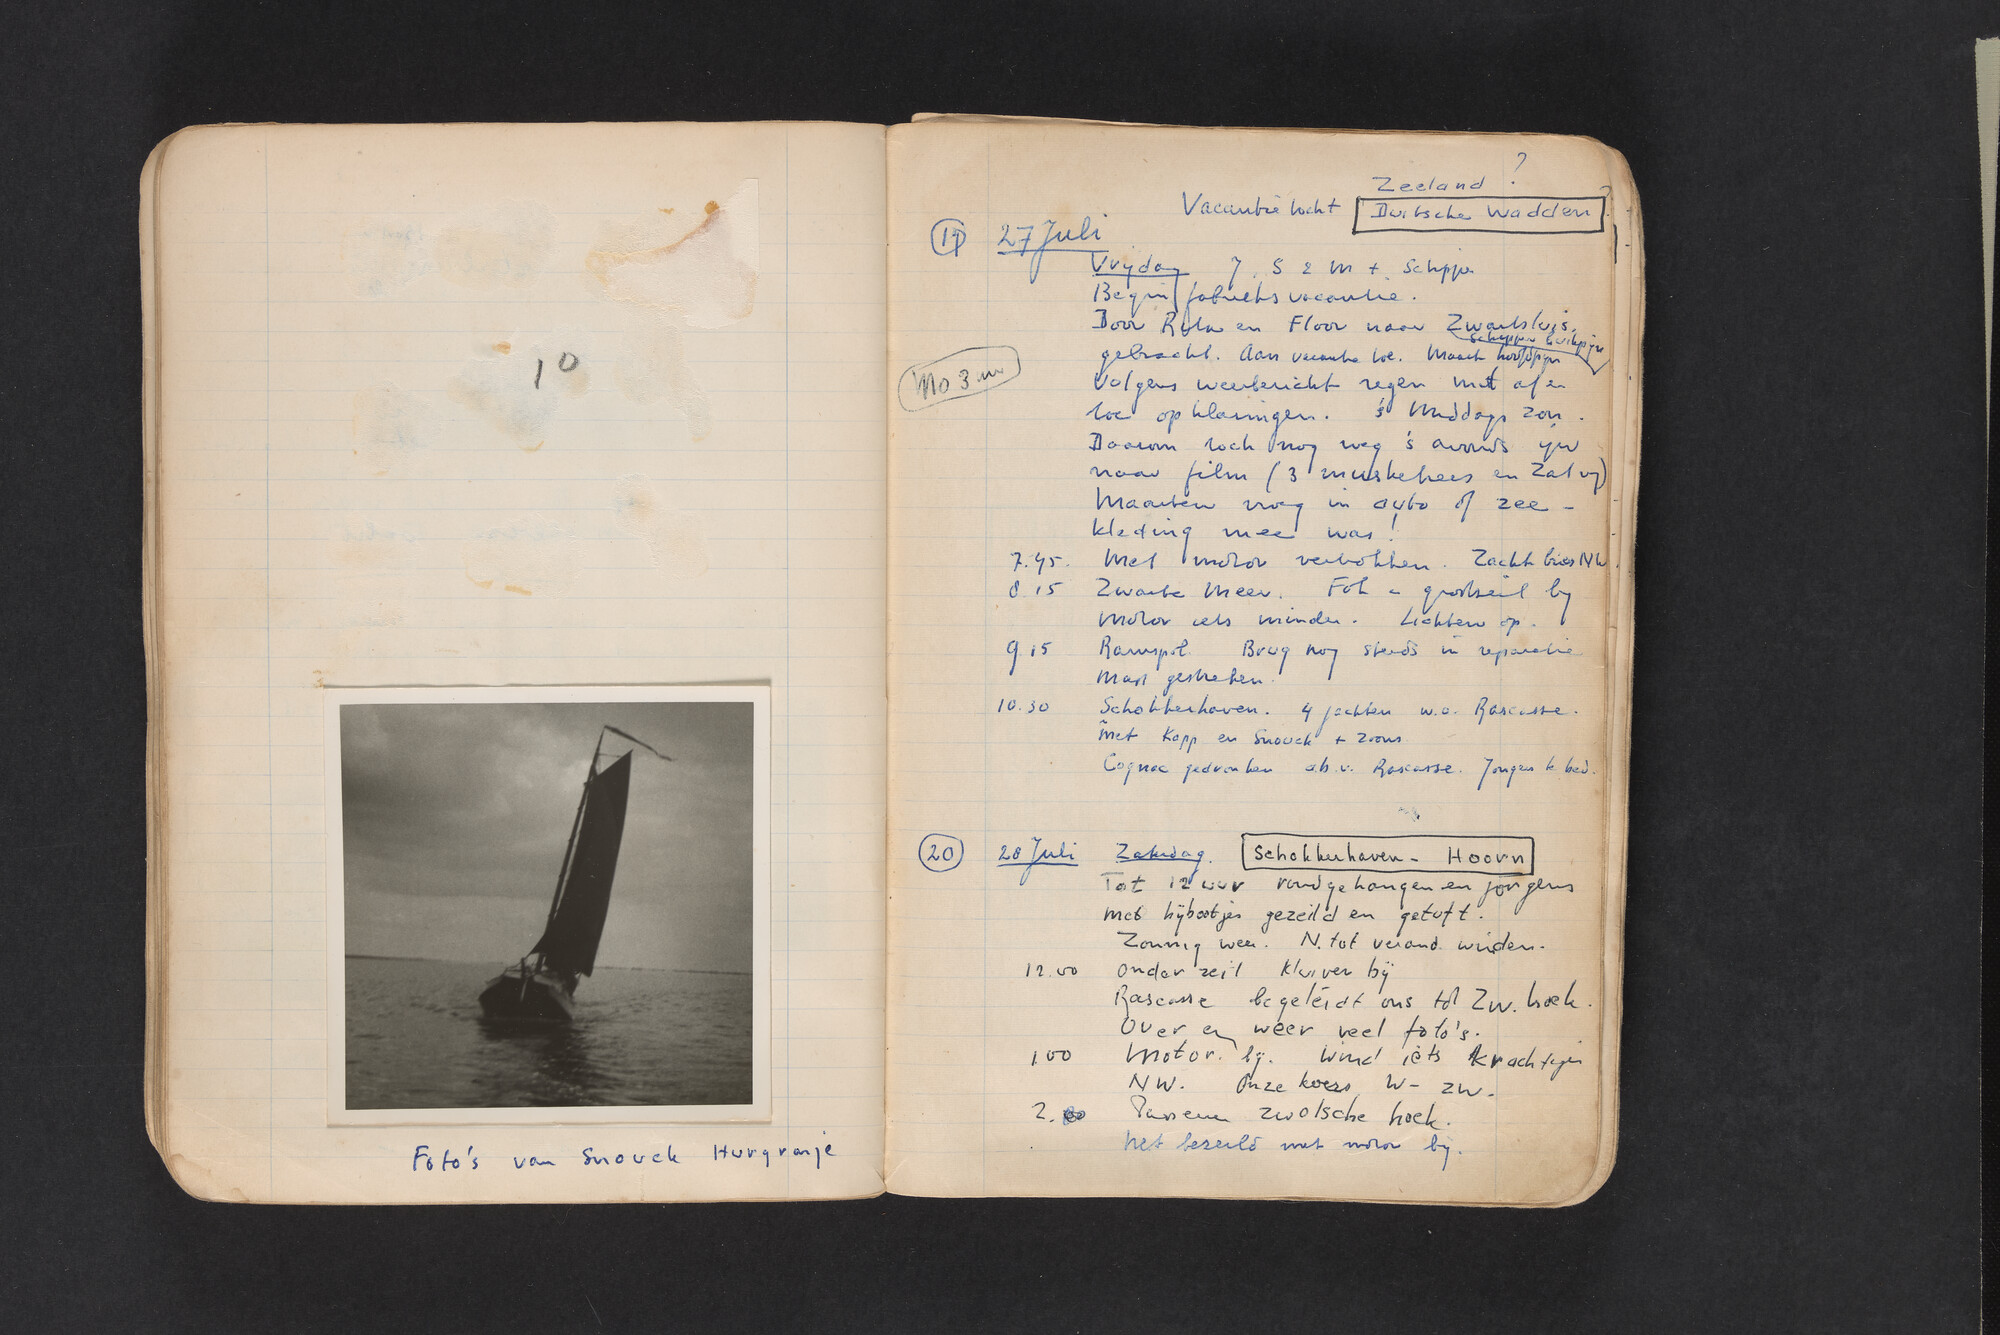 10
Foto's van Snouck Hurgronje
Zeeland ?
Vacantietocht Duitsche Wadden ?
19 27 Juli
Vrydag J, S 2 M + Schipper
Begin fabrieksvacantie.
Door Ruta en Floor naar Zwartsluis.
gebracht. Aan vacantie toe. Maart hoofdpijn
Mo 3 uur
Volgens weerbericht regen met af en
toe opklaringen. 's Middags zon.
Daarom toch nog weg 's avonds ipv
naar film (3 musketiers en Zat vy)
Maarten vroeg in auto of zee-
kleding mee was!
7.45. Met motor vertrokken. Zacht bries NW
8.15 Zwarte Meer. Fok en grootzeil by
motor iets minder. Lichten op.
9.15 Ramspol. Brug nog steeds in reparatie
Mast gestreken.
10.30 Schokkerhaven. 4 jachten w.o. Rascasse.
met Kapp en Snouck + zoons
Cognac gedronken a.b.v. Rascasse. Jongens te bed.
20 28 Juli Zaterdag. Schokkerhaven - Hoorn
Tot 12 uur rondgehangen en jongens
met bijbootjes gezeild en getuft.
Zonnig weer. N. tot verand. winden.
12.00 Onder zeil kluiver bij
Rascasse begeleidt ons tot Zw. hoek.
Over en weer veel foto's.
1.00 Motor by. Wind iets krachtiger
NW. Onze koers W - ZW.
2. Passeren Zwolsche hoek.
Net bezeild met motor by.